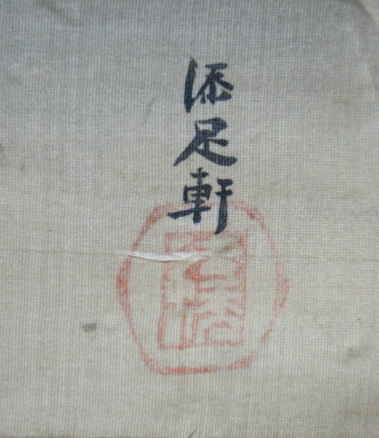 添足軒